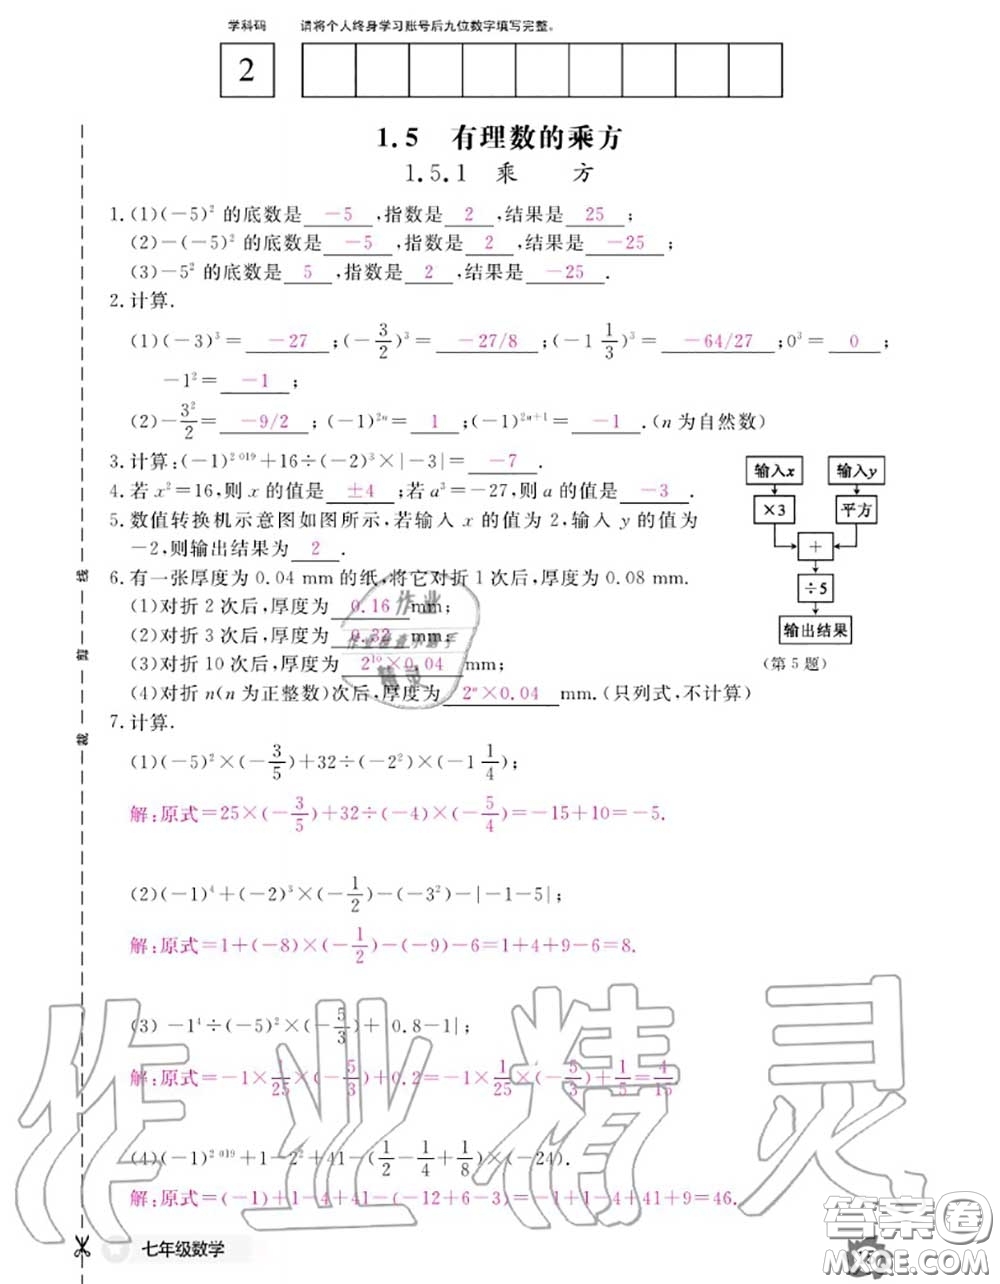 学科码 请将个人终身学习账号后九位数字填写完整。
2
1.5 有理数的乘方
1.5.1 乘 方
1.(1)(-5)² 的底数是 -5 ,指数是 2 ,结果是 25 ;
(2)-(-5)² 的底数是 -5 ,指数是 2 ,结果是 -25 ;
(3)-5² 的底数是 5 ,指数是 2 ,结果是 -25 .
2.计算.
(1)(-3)³= -27 ;(-3/2)³= -27/8 ;(-1 1/3)³= -64/27 ;0³= 0 ;
-1²= -1 ;
(2)-3²/2= -9/2 ;(-1)²ⁿ= 1 ;(-1)²ⁿ⁺¹= -1 .(n 为自然数)
3.计算:(-1)²⁰¹⁹+16÷(-2)³×|-3|= -7 .
4.若 x²=16,则 x 的值是 ±4 ;若 a³=-27,则 a 的值是 -3 .
5.数值转换机示意图如图所示,若输入 x 的值为 2,输入 y 的值为
-2,则输出结果为 2 .
输入x 输入y
×3 平方
+
÷5
输出结果
(第 5 题)
6.有一张厚度为 0.04 mm 的纸,将它对折 1 次后,厚度为 0.08 mm.
(1)对折 2 次后,厚度为 0.16 mm;
(2)对折 3 次后,厚度为 0.32 mm;
(3)对折 10 次后,厚度为 2¹⁰×0.04 mm;
(4)对折 n(n 为正整数)次后,厚度为 2ⁿ×0.04 mm.(只列式,不计算)
7.计算.
(1)(-5)²×(-3/5)+32÷(-2²)×(-1 1/4);
解:原式=25×(-3/5)+32÷(-4)×(-5/4)=-15+10=-5.
(2)(-1)⁴+(-2)³×(-1/2)-(-3²)-|-1-5|;
解:原式=1+(-8)×(-1/2)-(-9)-6=1+4+9-6=8.
(3) -1⁴÷(-5)²×(-5/3)+|0.8-1|;
解:原式=-1×1/25×(-5/3)+0.2=-1×1/25×(-5/3)+1/5=4/15
(4)(-1)²⁰¹⁹+1-2²+41-(1/2-1/4+1/8)×(-24).
解:原式=(-1)+1-4+41-(-12+6-3)=-1+1-4+41+9=46.
七年级数学
裁 剪 线
作业精灵
答案圈